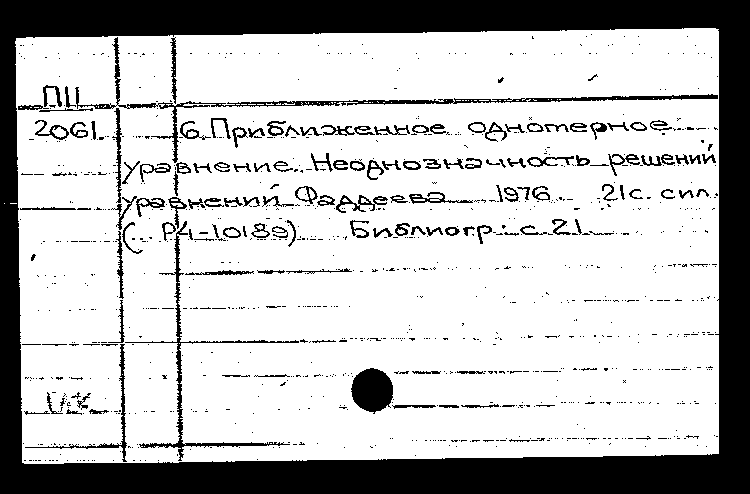 П11
2061. 6. Приближенное одномерное
уравнение. Неоднозначность решений
уравнений Фаддеева 1976. 21с. с ил.
(Р4-10189) Библиогр: с. 21.